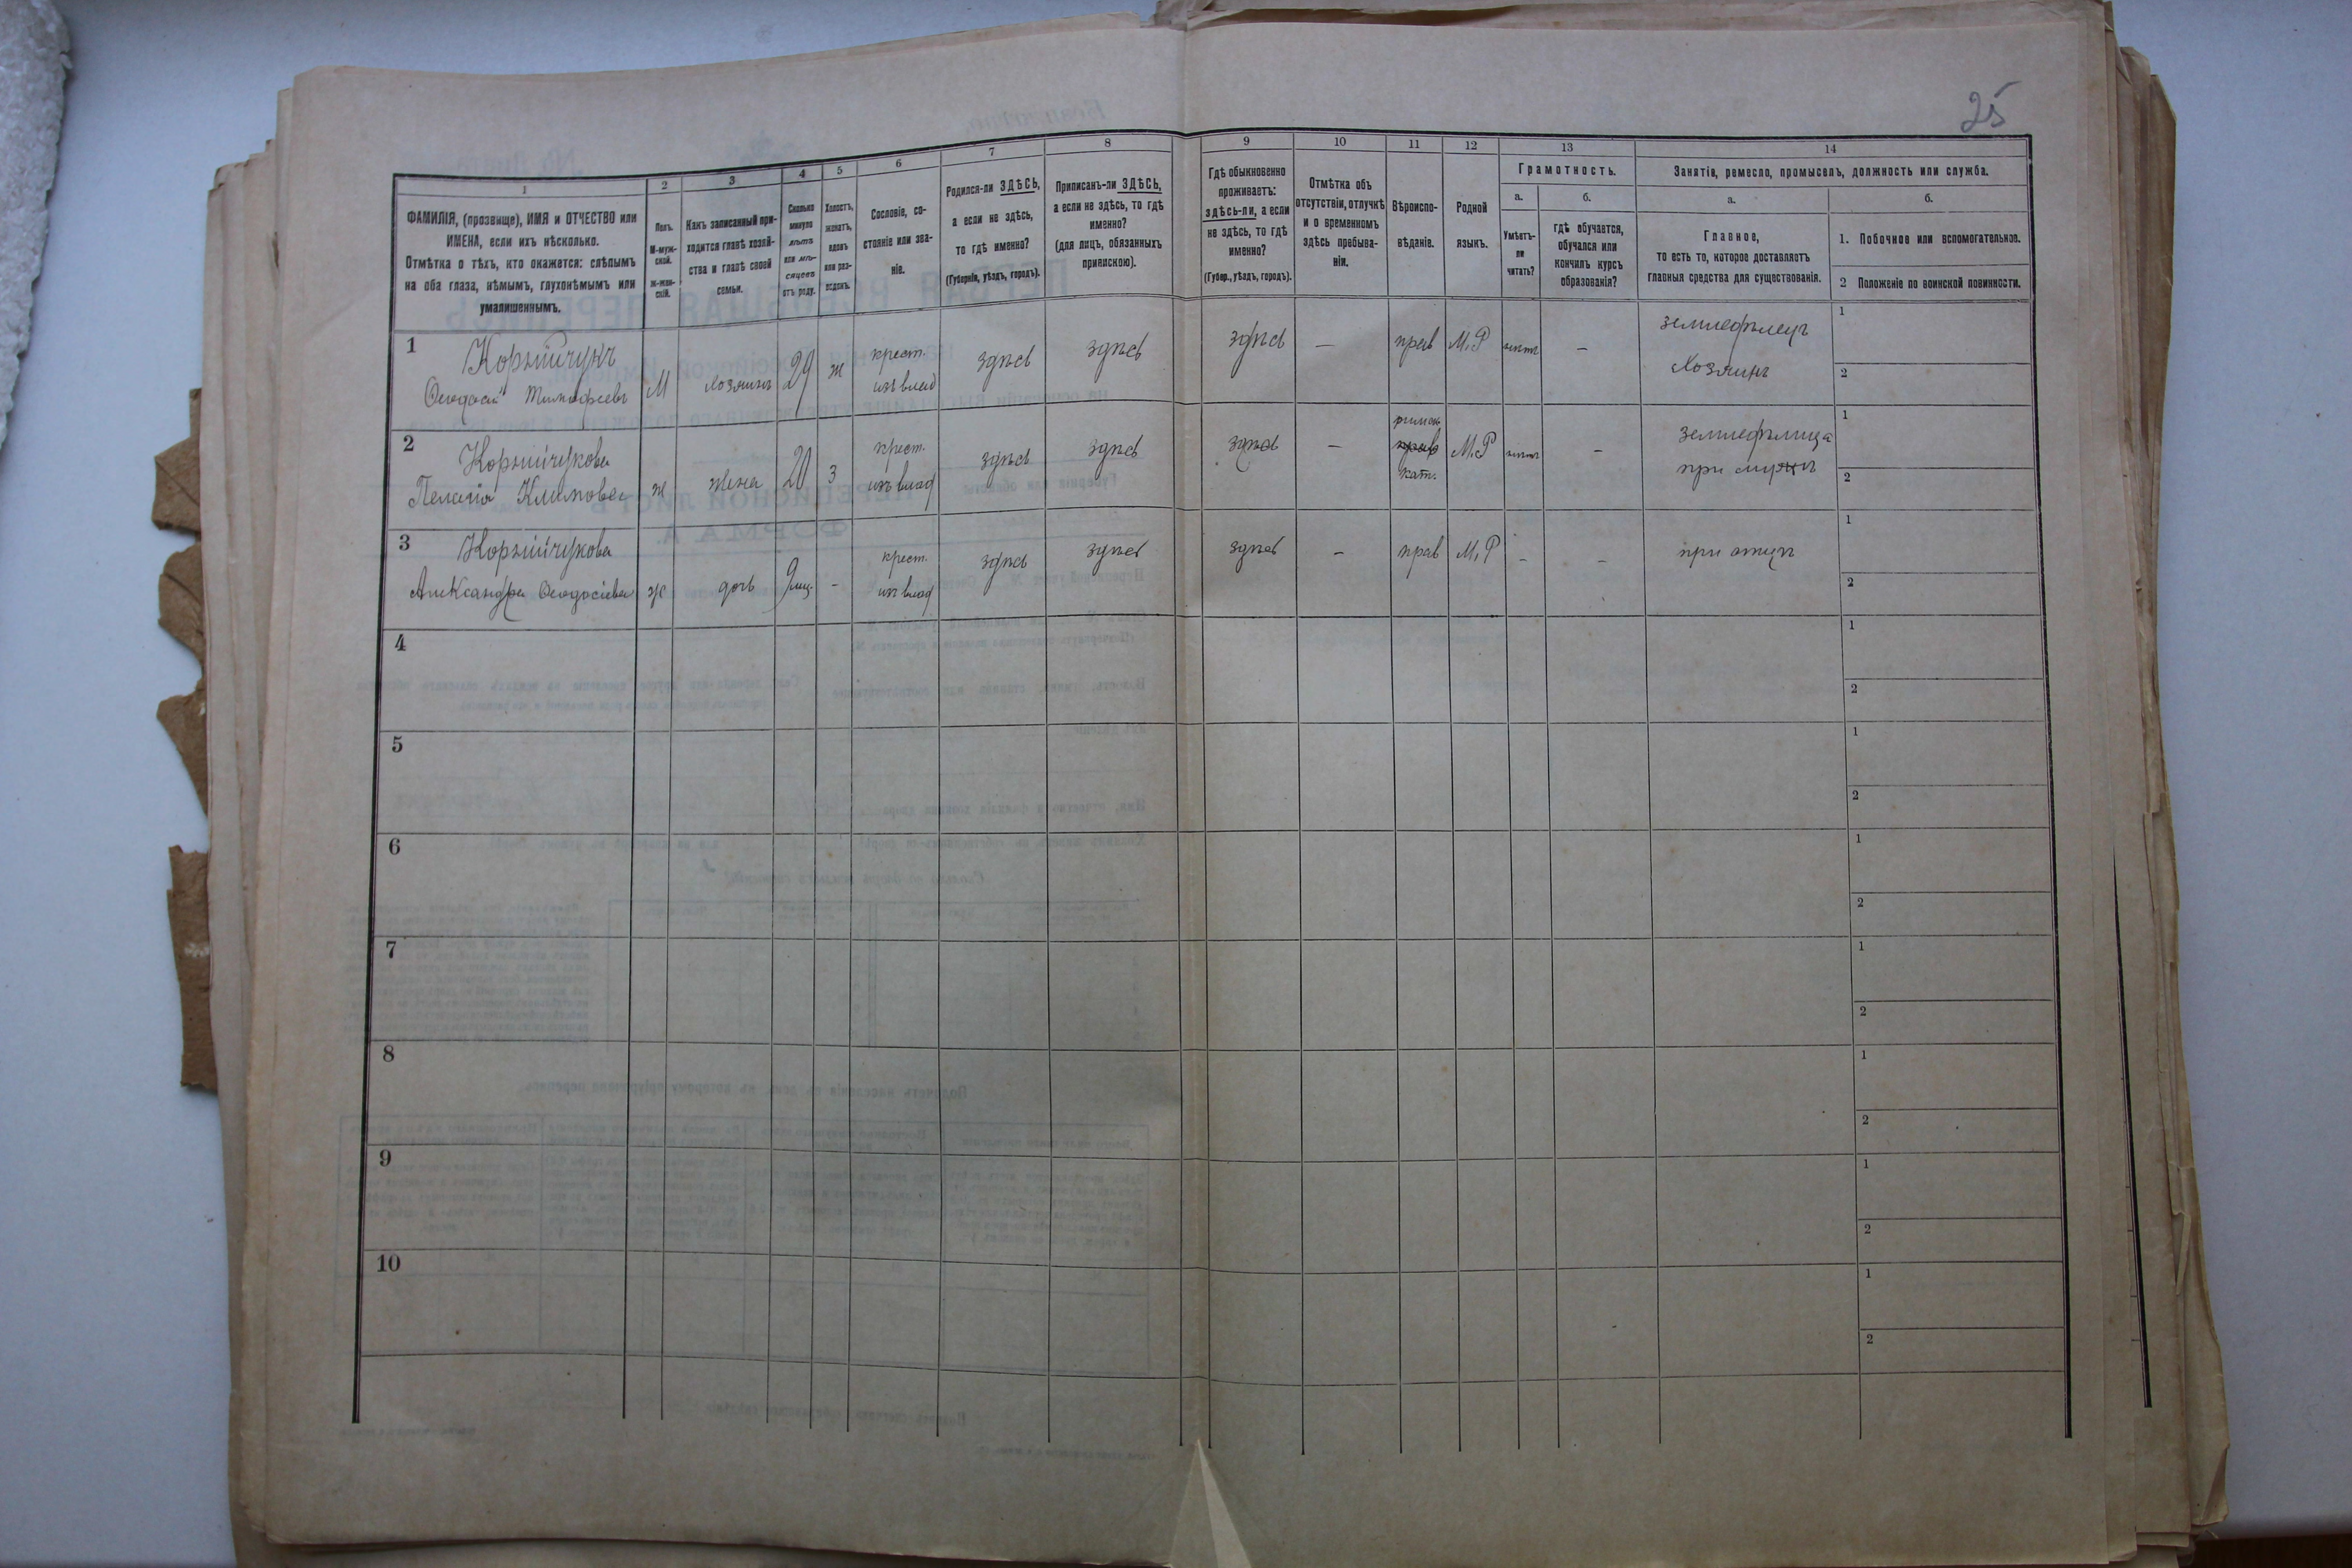 25
1 2 3 4 5 6 7 8 9 10 11 12 13 14
ФАМИЛІЯ, (прозвище), ИМЯ и ОТЧЕСТВО или
ИМЕНА, если ихъ нѣсколько.
Отмѣтка о тѣхъ, кто окажется: слѣпымъ
на оба глаза, нѣмымъ, глухонѣмымъ или
умалишеннымъ.
Полъ.
М-муж-
ской.
Ж-жен-
скій.
Какъ записанный при-
ходится главѣ хозяй-
ства и главѣ своей
семьи.
Сколько
минуло
лѣтъ
или мѣ-
сяцевъ
отъ роду.
Холостъ,
женатъ,
вдовъ
или раз-
веденъ.
Сословіе, со-
стояніе или зва-
ніе.
Родился-ли ЗДѢСЬ,
а если не здѣсь,
то гдѣ именно?
(Губернія, уѣздъ, городъ).
Приписанъ-ли ЗДѢСЬ,
а если не здѣсь, то гдѣ
именно?
(для лицъ, обязанныхъ
припискою).
Гдѣ обыкновенно
проживаетъ:
здѣсь-ли, а если
не здѣсь, то гдѣ
именно?
(Губер., уѣздъ, городъ).
Отмѣтка объ
отсутствіи, отлучкѣ
и о временномъ
здѣсь пребыва-
ніи.
Вѣроиспо-
вѣданіе.
Родной
языкъ.
Грамотность.
а.
Умѣетъ-
ли
читать?
б.
гдѣ обучается,
обучался или
кончилъ курсъ
образованія?
Занятіе, ремесло, промыселъ, должность или служба.
а.
Главное,
то есть то, которое доставляетъ
главныя средства для существованія.
б.
1. Побочное или вспомогательное.
2 Положеніе по воинской повинности.
1
Ѳеодосій Тимофеевъ
М
хозяинъ
29
ж
крест.
изъ влад
здѣсь
здѣсь
здѣсь
—
прав
М.Р
нѣтъ
—
земледѣлецъ
хозяинъ
1
2
2
Пелагія Климова
ж
жена
20
з
крест.
изъ влад
здѣсь
здѣсь
здѣсь
—
римск
прав
кат.
М.Р
нѣтъ
—
земледѣлица
при мужѣ
1
2
3
Александра Ѳеодосіева
ж
дочь
9 мц.
-
крест.
изъ влад
здѣсь
здѣсь
здѣсь
—
прав
М.Р
-
-
при отцѣ
1
2
4
1
2
5
1
2
6
1
2
7
1
2
8
1
2
9
1
2
10
1
2